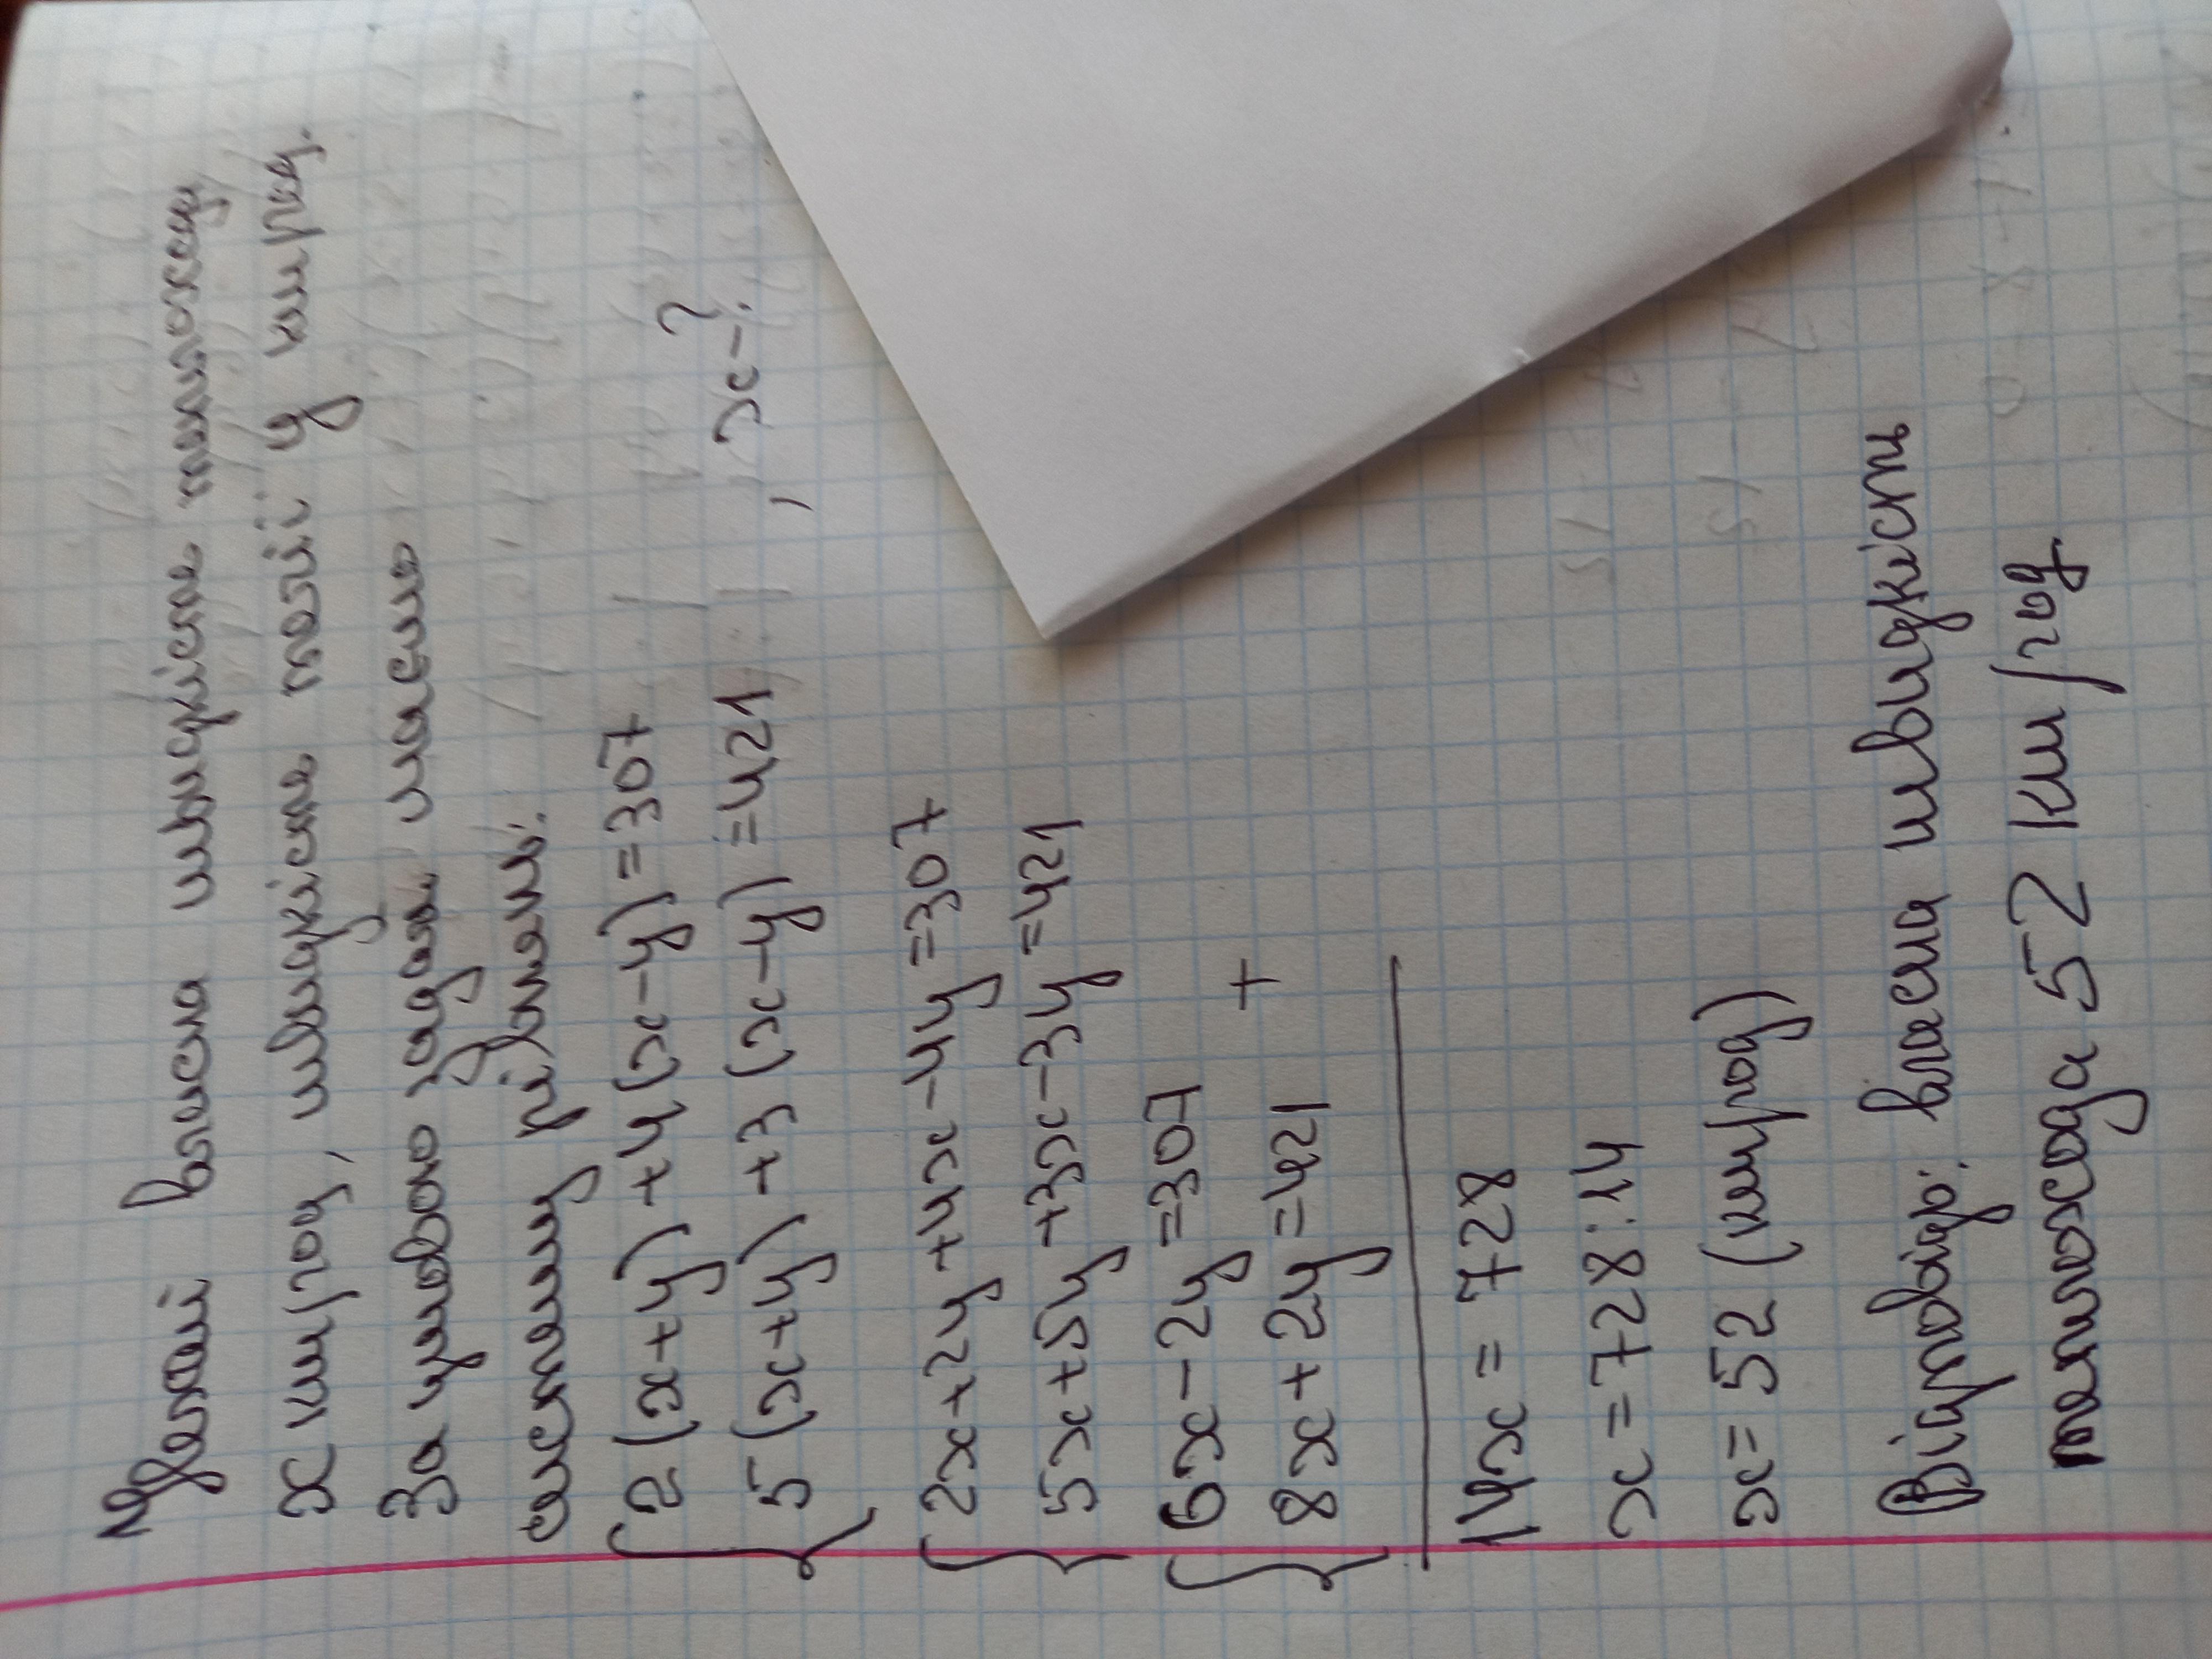 Нехай власна швидкість теплоходу
x км/год, швидкість течії y км/год.
За умовою задачі маємо
систему рівнянь:
{2(x+y)+4(x-y)=307
5(x+y)+3(x-y)=421, x-?
{2x+2y+4x-4y=307
5x+5y+3x-3y=421
{6x-2y=307
8x+2y=421 +
14x=728
x=728:14
x=52 (км/год)
Відповідь: власна швидкість
теплохода 52 км/год.